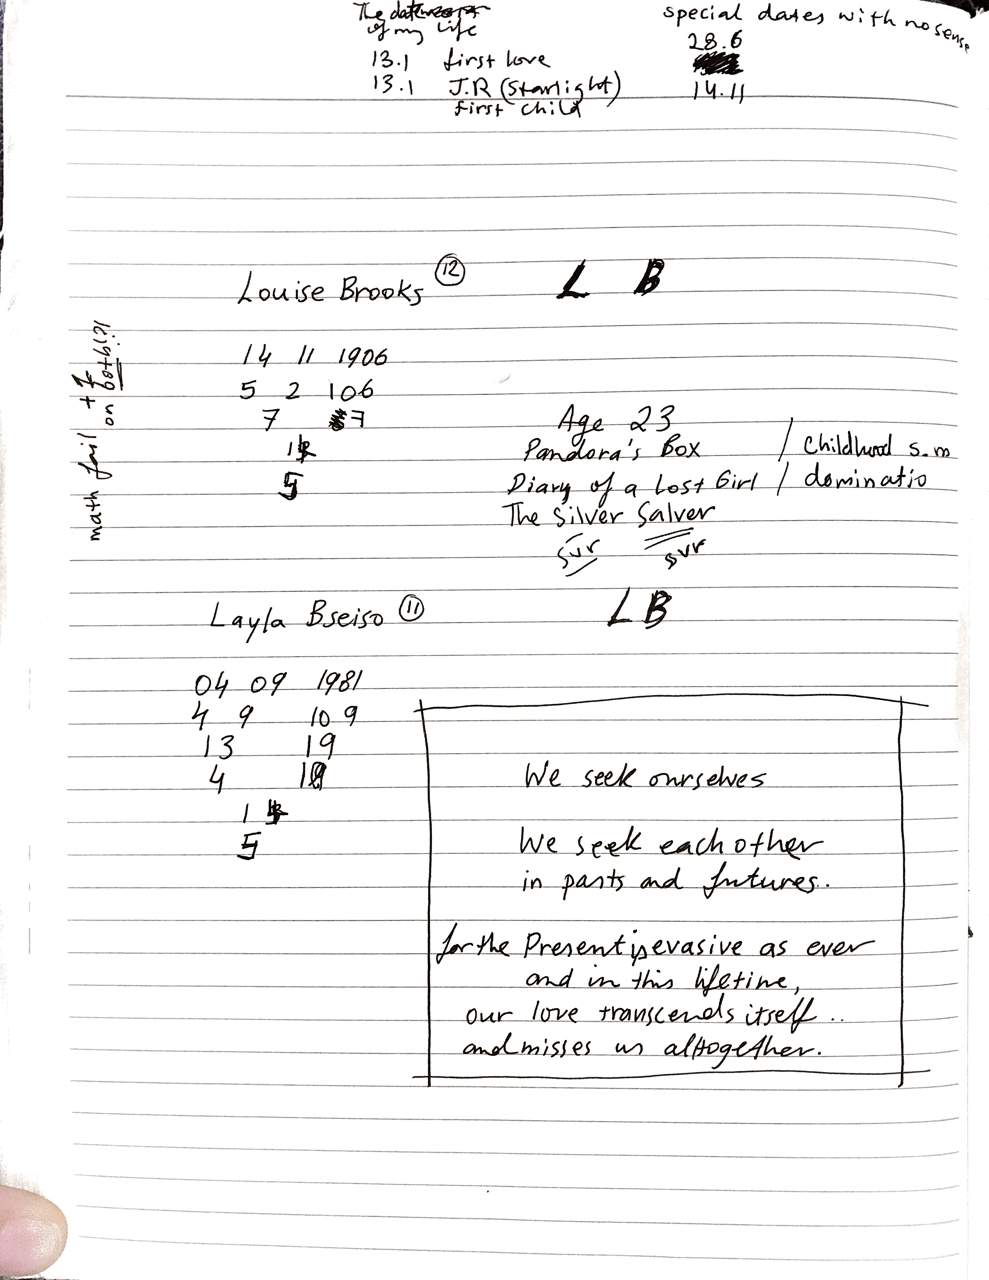 The date
of my life
13.1 first love
13.1 J.R (Starlight)
first child
special dates with no sense
28.6
14.11
Louise Brooks 12
L B
14 11 1906
5 2 106
7 7
1
5
math fail + 1
on both
Age 23
Pandora's Box / Childhood s.m
Diary of a Lost Girl / dominatio
The Silver Salver
svr svr
Layla Bseiso 11
L B
04 09 1981
4 9 10 9
13 19
4 1
1
5
We seek ourselves
We seek each other
in pasts and futures..
for the Present is evasive as ever
and in this lifetime,
our love transcends itself..
and misses us altogether.